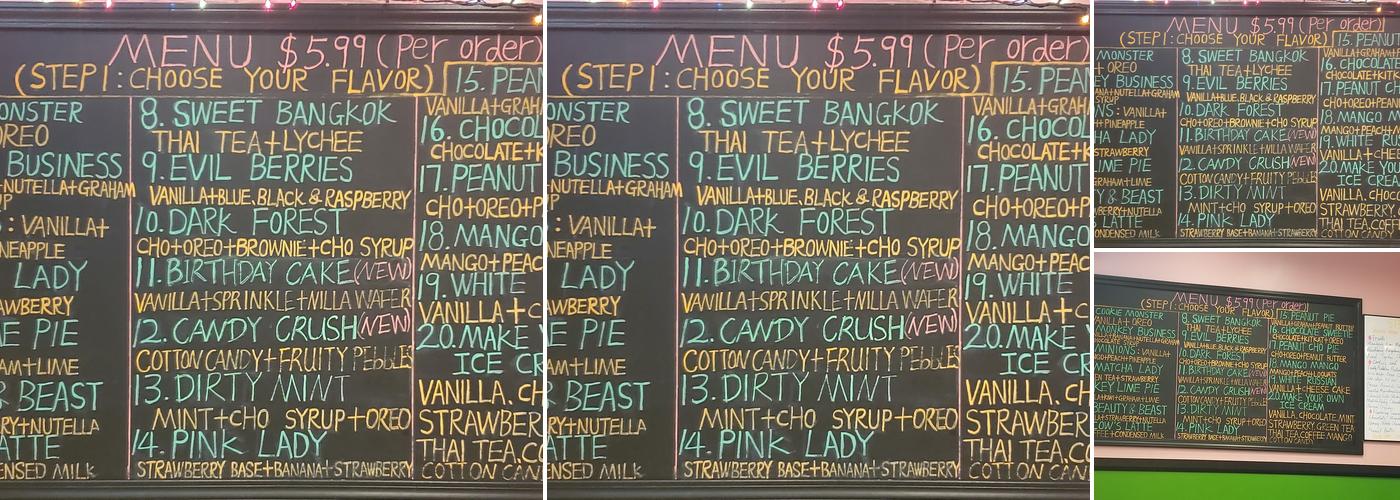 MENU $5.99 (Per order)
(STEP1: CHOOSE YOUR FLAVOR)
ONSTER
OREO
BUSINESS
+NUTELLA+GRAHAM
: VANILLA+
NEAPPLE
LADY
AWBERRY
E PIE
AM+LIME
& BEAST
RY+NUTELLA
ATTE
ENSED MILK
8. SWEET BANGKOK
THAI TEA+LYCHEE
9. EVIL BERRIES
VANILLA+BLUE, BLACK & RASPBERRY
10. DARK FOREST
CHO+OREO+BROWNIE+CHO SYRUP
11. BIRTHDAY CAKE (NEW)
VANILLA+SPRINKLE+NILLA WAFER
12. CANDY CRUSH (NEW)
COTTON CANDY+FRUITY PEBBLE
13. DIRTY MINT
MINT+CHO SYRUP+OREO
14. PINK LADY
STRAWBERRY BASE+BANANA+STRAWBERRY
15. PEAN
VANILLA+GRAH
16. CHOCOL
CHOCOLATE+K
17. PEANUT
CHO+OREO+P
18. MANGO
MANGO+PEAC
19. WHITE
VANILLA+C
20. MAKE
ICE CR
VANILLA, CH
STRAWBER
THAI TEA, CO
COTTON CAN
MENU $5.99 (Per order)
(STEP1: CHOOSE YOUR FLAVOR)
ONSTER
OREO
BUSINESS
+NUTELLA+GRAHAM
: VANILLA+
NEAPPLE
LADY
AWBERRY
E PIE
AM+LIME
& BEAST
RY+NUTELLA
ATTE
ENSED MILK
8. SWEET BANGKOK
THAI TEA+LYCHEE
9. EVIL BERRIES
VANILLA+BLUE, BLACK & RASPBERRY
10. DARK FOREST
CHO+OREO+BROWNIE+CHO SYRUP
11. BIRTHDAY CAKE (NEW)
VANILLA+SPRINKLE+NILLA WAFER
12. CANDY CRUSH (NEW)
COTTON CANDY+FRUITY PEBBLE
13. DIRTY MINT
MINT+CHO SYRUP+OREO
14. PINK LADY
STRAWBERRY BASE+BANANA+STRAWBERRY
15. PEAN
VANILLA+GRAH
16. CHOCOL
CHOCOLATE+K
17. PEANUT
CHO+OREO+P
18. MANGO
MANGO+PEAC
19. WHITE
VANILLA+C
20. MAKE
ICE CR
VANILLA, CH
STRAWBER
THAI TEA, CO
COTTON CAN
MENU $5.99 (Per order)
(STEP1: CHOOSE YOUR FLAVOR)
MONSTER
+ OREO
EY BUSINESS
NS : VANILLA+
+PINEAPPLE
HA LADY
STRAWBERRY
IME PIE
GRAHAM+LIME
Y & BEAST
BERRY+NUTELLA
CONDENSED MILK
8. SWEET BANGKOK
THAI TEA+LYCHEE
9. EVIL BERRIES
VANILLA+BLUE, BLACK & RASPBERRY
10. DARK FOREST
CHO+OREO+BROWNIE+CHO SYRUP
11. BIRTHDAY CAKE (NEW)
VANILLA+SPRINKLE+NILLA WAFER
12. CANDY CRUSH (NEW)
COTTON CANDY+FRUITY PEBBLE
13. DIRTY MINT
MINT+CHO SYRUP+OREO
14. PINK LADY
STRAWBERRY BASE+BANANA+STRAWBERRY
15. PEANUT
VANILLA+GRAHAM+
16. CHOCOLATE
CHOCOLATE+KIT
17. PEANUT CH
CHO+OREO+PEA
18. MANGO M
MANGO+PEACH
19. WHITE RU
VANILLA+CHEE
20. MAKE YOU
ICE CREA
VANILLA, CHOCO
STRAWBERRY
THAI TEA, COFFE
COTTON CAND
MENU $5.99 (Per order)
(STEP1: CHOOSE YOUR FLAVOR)
COOKIE MONSTER
VANILLA+ OREO
MONKEY BUSINESS
MINIONS : VANILLA+
MATCHA LADY
KEY LIME PIE
BEAUTY & BEAST
8. SWEET BANGKOK
THAI TEA+LYCHEE
9. EVIL BERRIES
VANILLA+BLUE, BLACK & RASPBERRY
10. DARK FOREST
CHO+OREO+BROWNIE+CHO SYRUP
11. BIRTHDAY CAKE (NEW)
VANILLA+SPRINKLE+NILLA WAFER
12. CANDY CRUSH (NEW)
COTTON CANDY+FRUITY PEBBLE
13. DIRTY MINT
MINT+CHO SYRUP+OREO
14. PINK LADY
STRAWBERRY BASE+BANANA+STRAWBERRY
15. PEANUT PIE
VANILLA+GRAHAM+PEANUT BUTTER
16. CHOCOLATE SWEETIE
CHOCOLATE+KITKAT+OREO
17. PEANUT CHO PIE
CHO+OREO+PEANUT BUTTER
18. MANGO MANGO
19. WHITE RUSSIAN
VANILLA+CHEESE CAKE
20. MAKE YOUR OWN
ICE CREAM
VANILLA, CHOCOLATE, MINT
STRAWBERRY, GREEN TEA
THAI TEA, COFFEE MANGO
COTTON CANDY